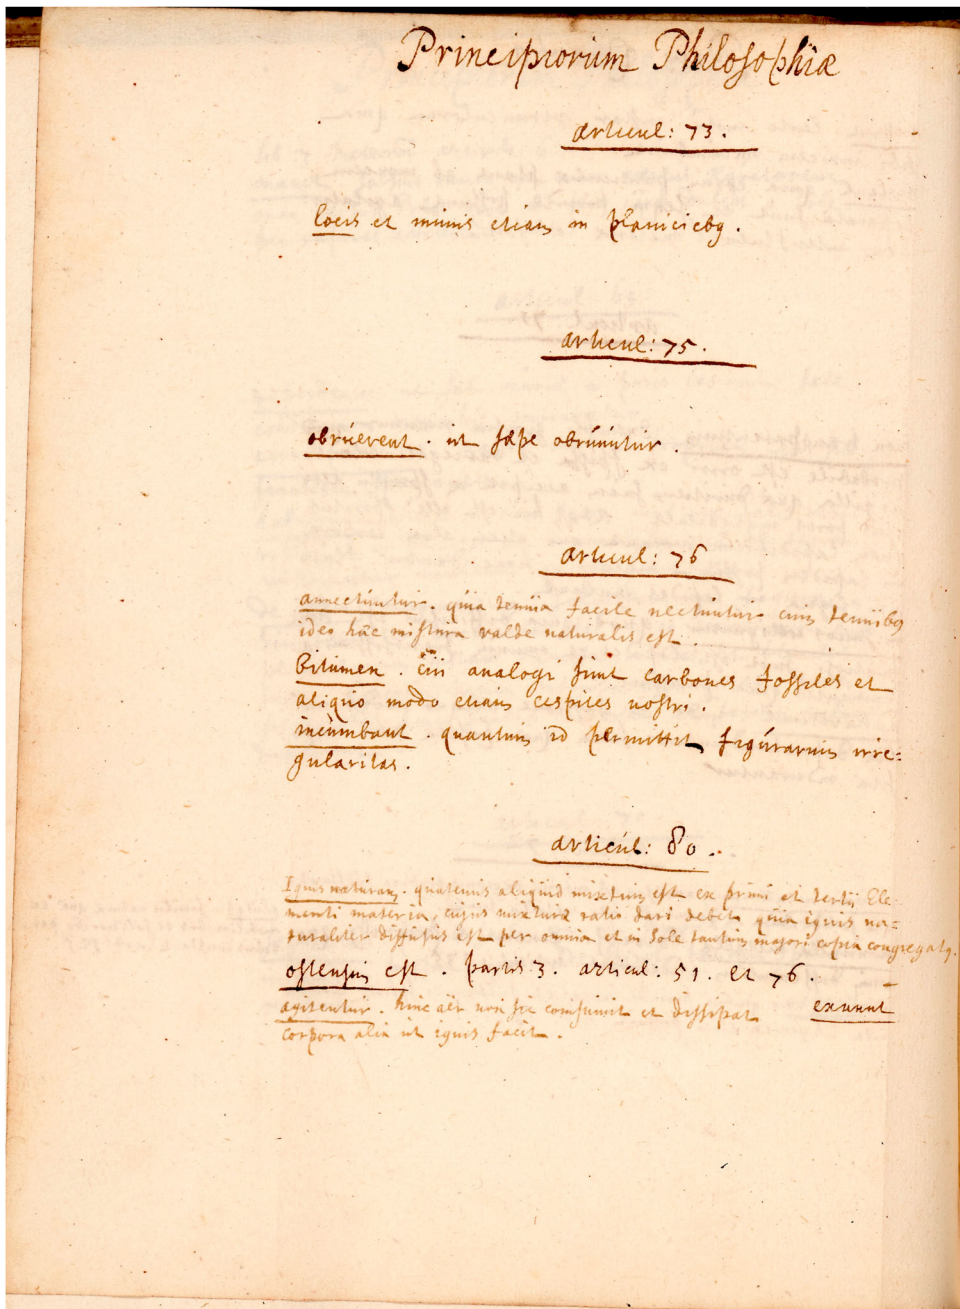 Principiorum Philosophiæ
articul: 73.
locis et mimis etiam in planiciebq.
articul: 75.
obruerent. ut sæpe obruuntur.
articul: 76
annectuntur. quia tenuia facile nectuntur cum tenuibq
ideo hæc mistura valde naturalis est.
Bitumen. cui analogi sunt carbones fossiles et
aliquo modo etiam cespites nostri.
incumbant. quantum id permittit figurarum irre=
gularitas.
articul: 80.
Ignis naturam. quatenus aliquid mixtum est ex primi et tertij Ele-
menti materia, cujus mixturæ ratio dari debet, quia ignis na=
turaliter diffusus est per omnia et in Sole tantum majori copia congregatq.
ostensum est. partis 3. articul: 51. et 76.
agitentur. hinc aër non sic consumit et dissipat
corpora alia ut ignis facit.
exeunt